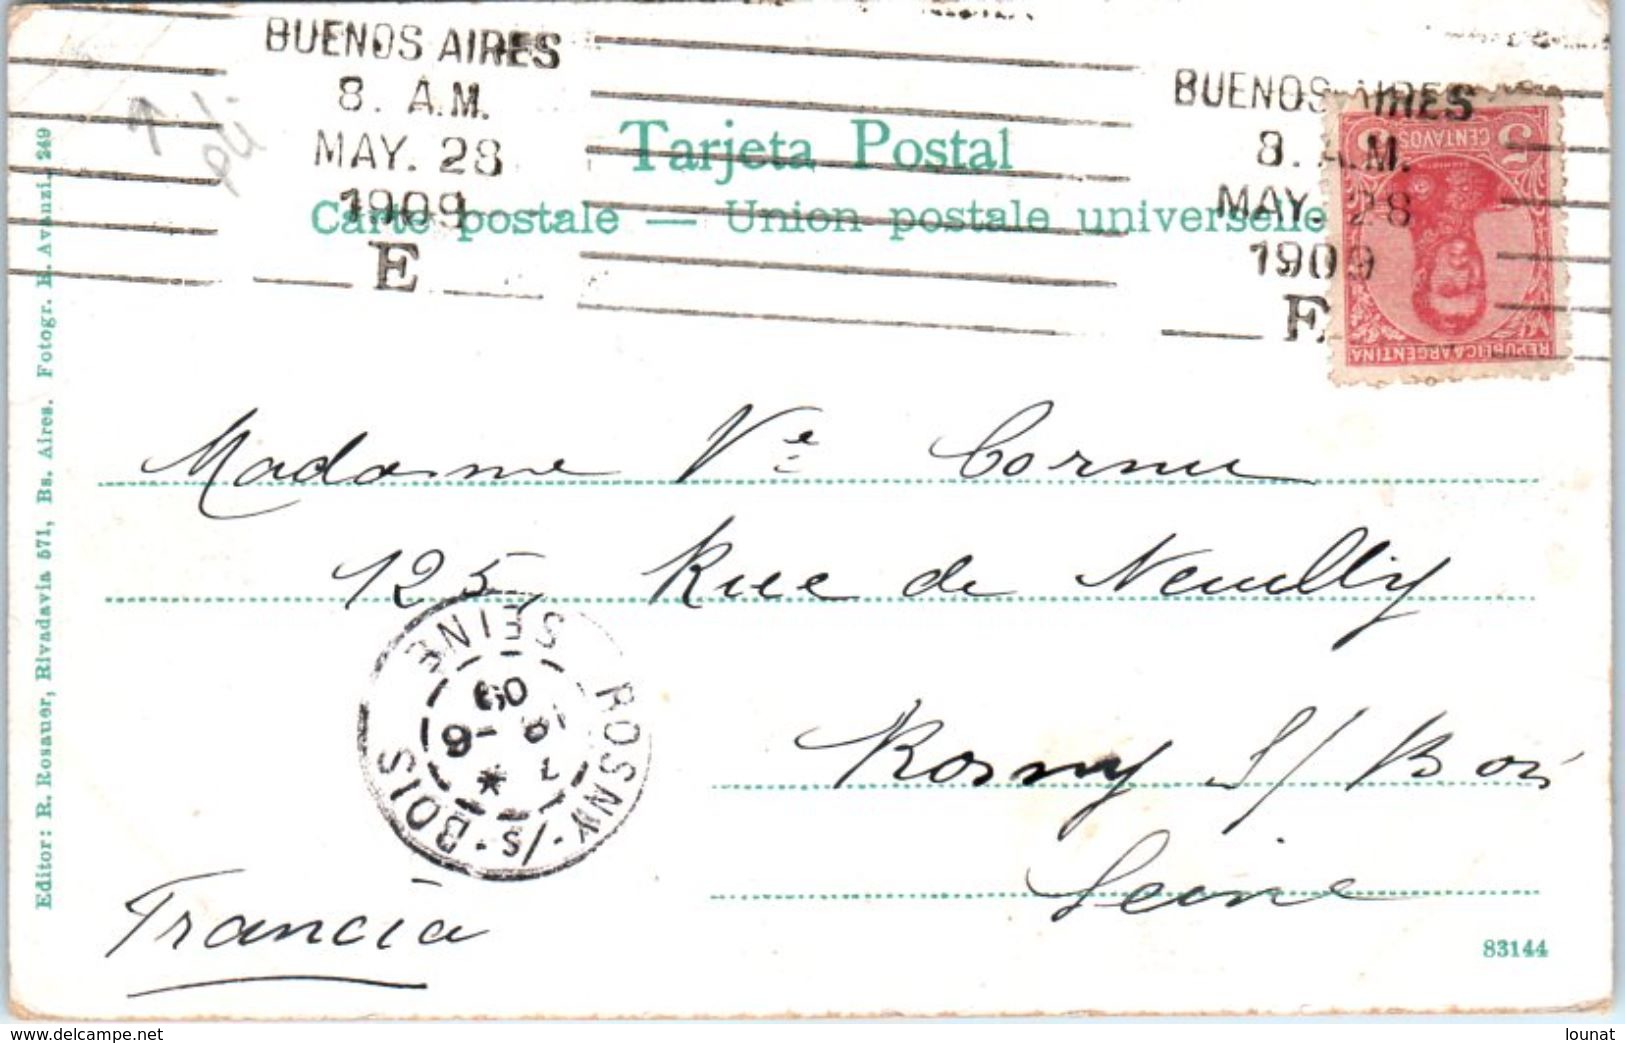 BUENOS AIRES
8. A.M.
MAY. 28
1909
E
BUENOS AIRES
8. A.M.
MAY. 28
1909
E
5 CENTAVOS 5
REPUBLICA ARGENTINA
Tarjeta Postal
Carte postale — Union postale universelle
Editor: R. Rosauer, Rivadavia 571, Bs. Aires. Fotogr. H. Avanzi. 249
Madame Ve Cornu
125, Rue de Neuilly
Rosny S/ Bois
Seine
Francia
ROSNY-/S-BOIS
SEINE
09
83144
www.delcampe.net
lounat